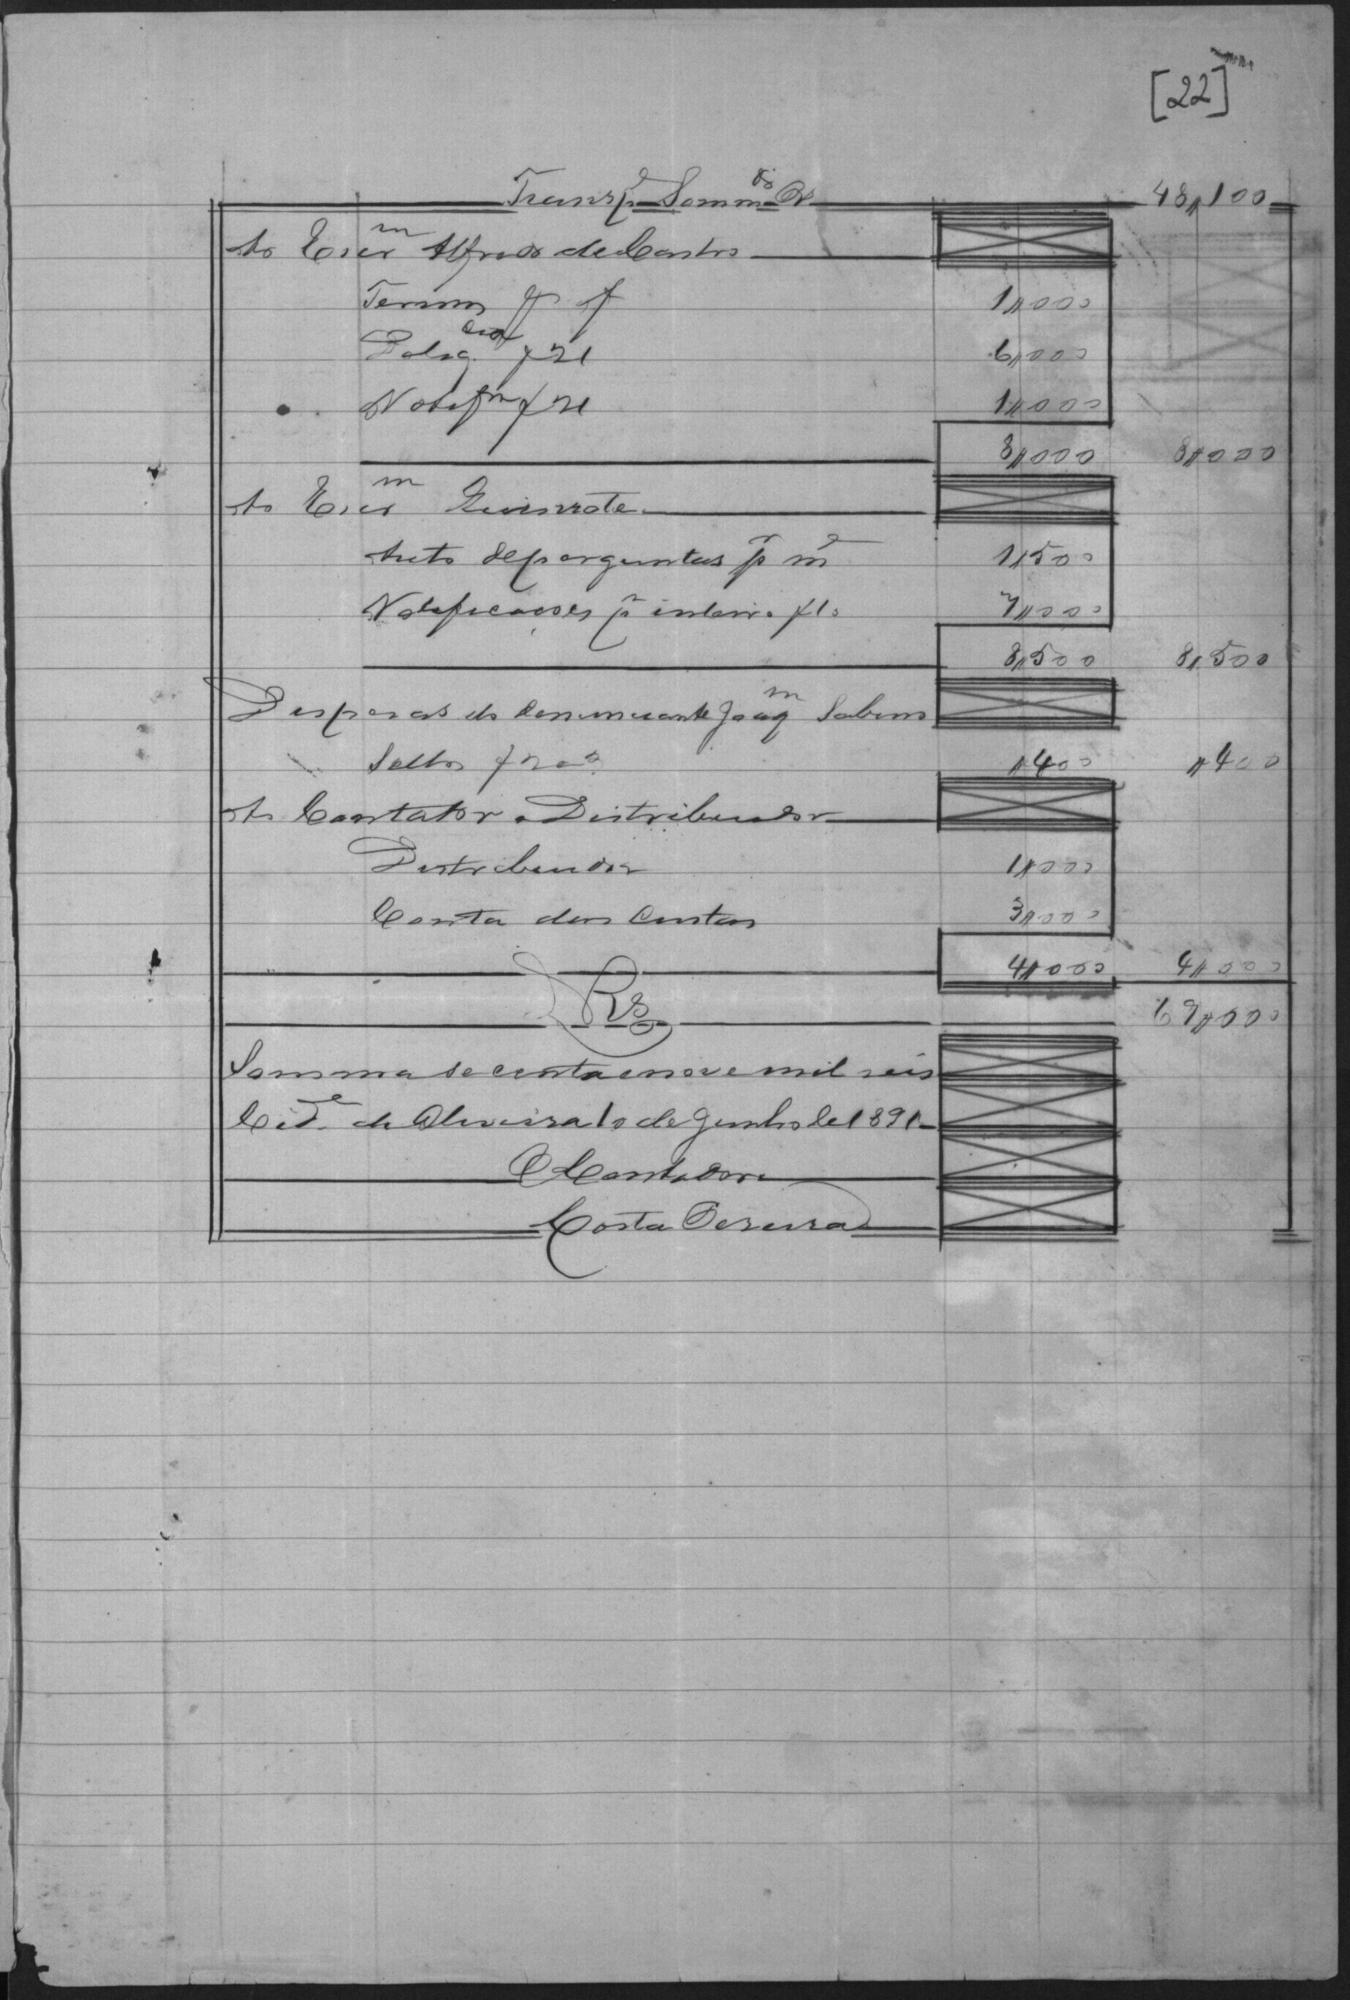 [22]
Transpe Sommas Rs 48,100
Ao Escrm Alfredo de Castro
Termos f 1,000
f 21 6,000
Notefm f 21 1,000
8,000 8,000
Ao Escrm
Auto de perguntas 1,500
Notificacoes pa 7,000
8,500 8,500
Despesas do denunciante Joaqm Sabino
Sellos ,400 ,400
Ao Contador Distribuidor
Distribuidor 1,000
Conta das Custas 3,000
4,000 4,000
Rs
69,000
Somma secenta e nove mil reis
Cide de Oliveira 10 de Junho de 1891
O Contador
Costa Pereira